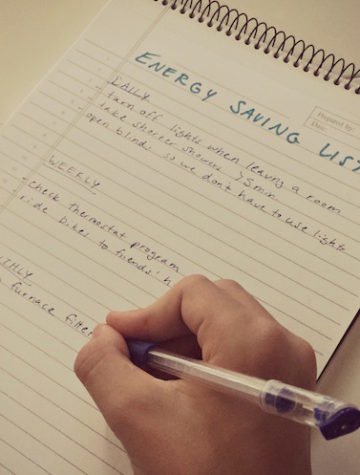 ENERGY SAVING LIST
Prepared by
Date
DAILY
- turn off lights when leaving a room
- take shorter showers > 5 min
- open blinds so we don't have to use lights
WEEKLY
- check thermostat program
- ride bikes to friends' h
furnace filter